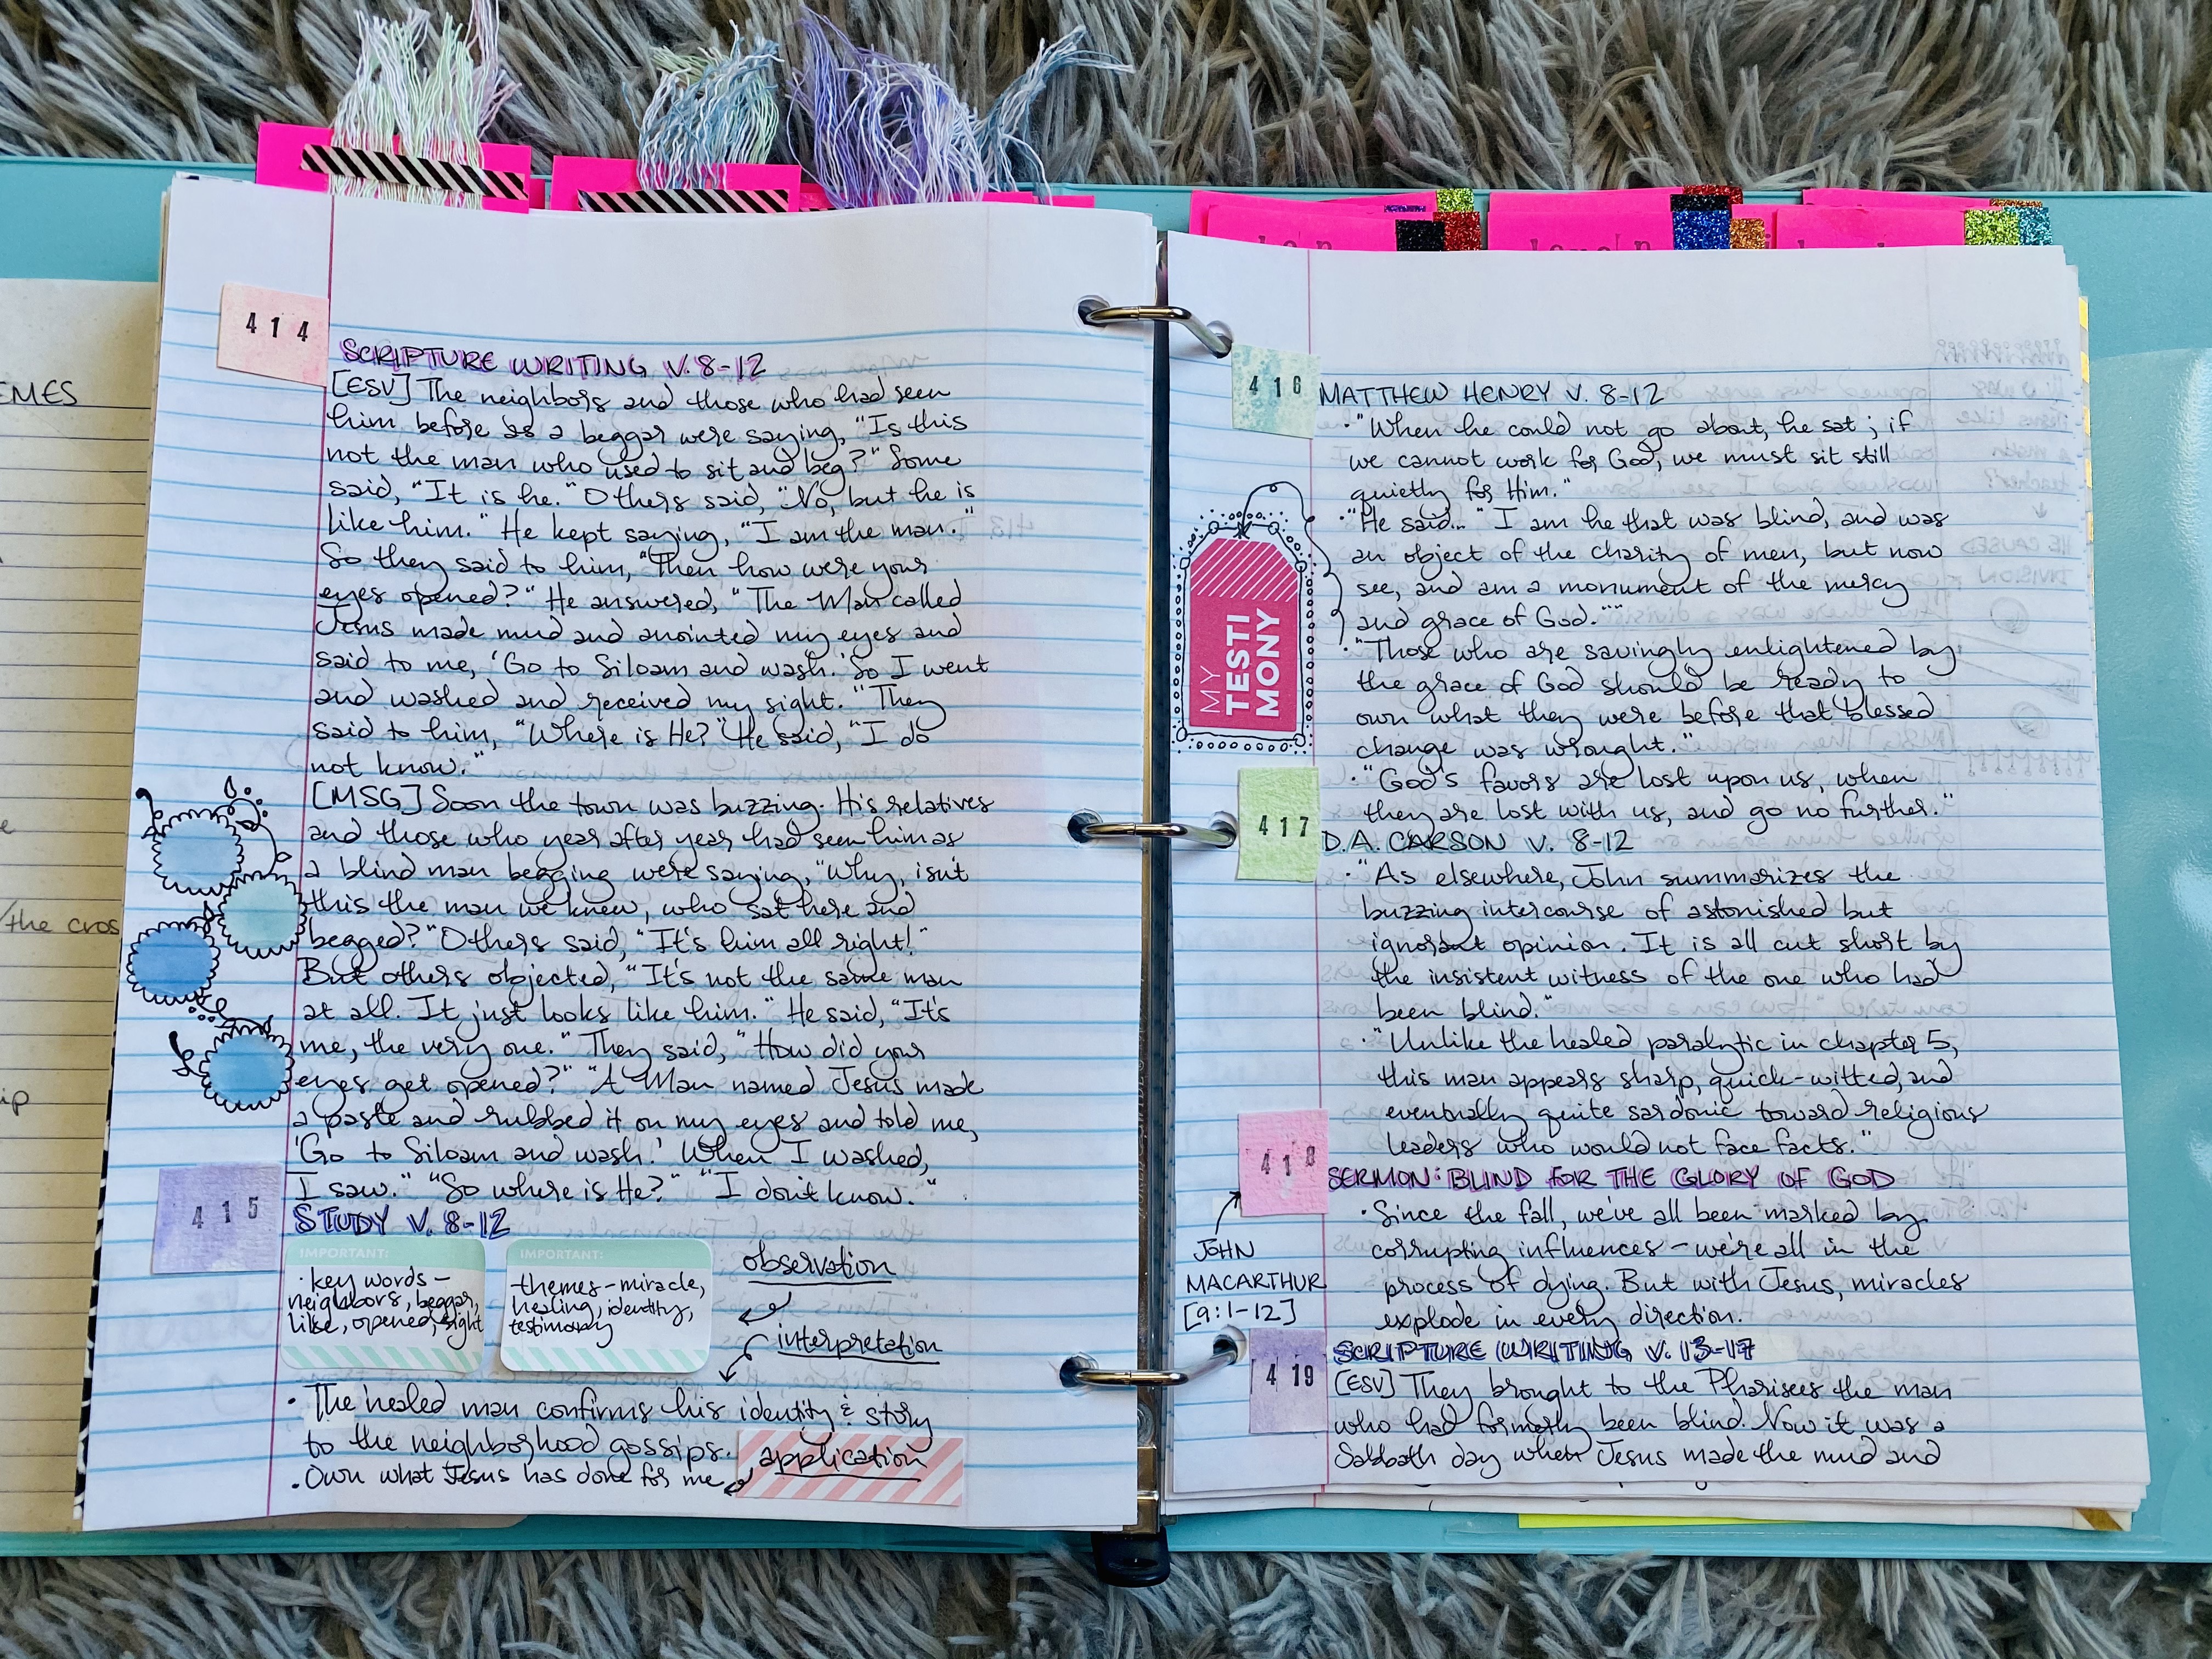 EMES
/the cros
ip
414
SCRIPTURE WRITING V. 8-12
[ESV] The neighbors and those who had seen
him before as a beggar were saying, "Is this
not the man who used to sit and beg?" Some
said, "It is he." Others said, "No, but he is
like him." He kept saying, "I am the man."
So they said to him, "Then how were your
eyes opened?" He answered, "The Man called
Jesus made mud and anointed my eyes and
said to me, 'Go to Siloam and wash.' So I went
and washed and received my sight." They
said to him, "Where is He?" He said, "I do
not know."
[MSG] Soon the town was buzzing. His relatives
and those who year after year had seen him as
a blind man begging were saying, "Why, isn't
this the man we knew, who sat here and
begged?" Others said, "It's him all right!"
But others objected, "It's not the same man
at all. It just looks like him." He said, "It's
me, the very one." They said, "How did your
eyes get opened?" "A Man named Jesus made
a paste and rubbed it on my eyes and told me,
'Go to Siloam and wash.' When I washed,
I saw." "So where is He?" "I don't know."
415
STUDY V. 8-12
IMPORTANT:
· key words -
neighbors, beggar,
like, opened, sight
IMPORTANT:
themes - miracle,
healing, identity,
testimony
observation
interpretation
• The healed man confirms his identity & story
to the neighborhood gossips.
• Own what Jesus has done for me
application
416
MATTHEW HENRY V. 8-12
· "When he could not go about, he sat; if
we cannot work for God, we must sit still
quietly for Him."
· "He said... "I am he that was blind, and was
an object of the charity of men, but now
see, and am a monument of the mercy
and grace of God.""
MY
TESTI
MONY
· "Those who are savingly enlightened by
the grace of God should be ready to
own what they were before that blessed
change was wrought."
· "God's favors are lost upon us, when
they are lost with us, and go no further."
417
D.A. CARSON V. 8-12
· "As elsewhere, John summarizes the
buzzing intercourse of astonished but
ignorant opinion. It is all cut short by
the insistent witness of the one who had
been blind."
· "Unlike the healed paralytic in chapter 5,
this man appears sharp, quick-witted, and
eventually quite sardonic toward religious
leaders who would not face facts."
418
SERMON: BLIND FOR THE GLORY OF GOD
JOHN
MACARTHUR
[9:1-12]
· Since the fall, we've all been marked by
corrupting influences - we're all in the
process of dying. But with Jesus, miracles
explode in every direction.
419
SCRIPTURE WRITING V. 13-17
[ESV] They brought to the Pharisees the man
who had formerly been blind. Now it was a
Sabbath day when Jesus made the mud and